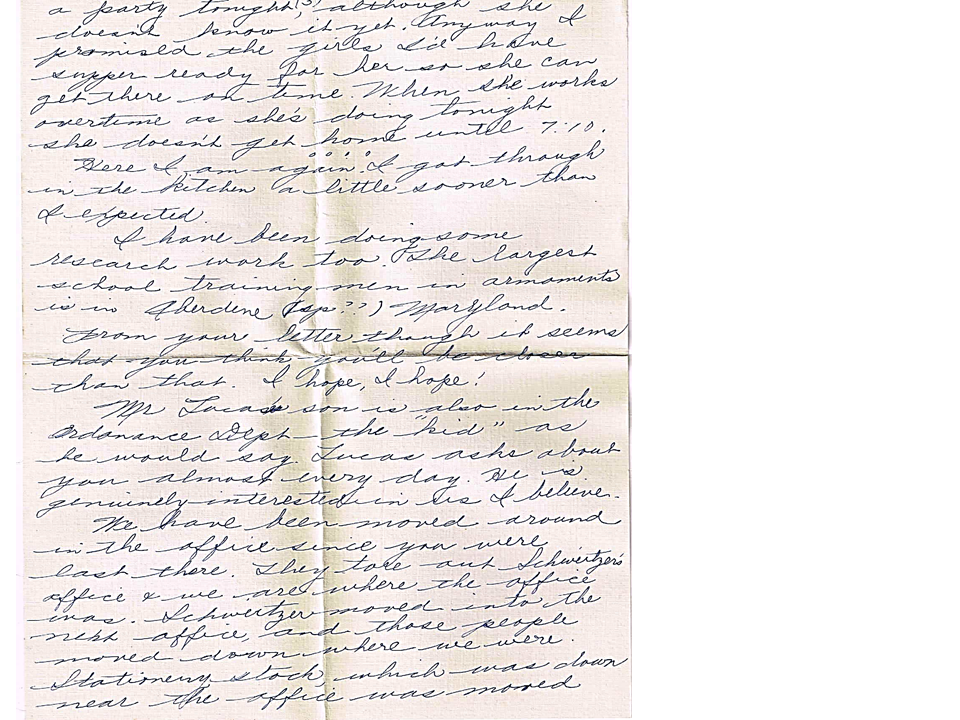 a party tonight(?), although she
doesn't know it yet. Anyway I
promised the girls I'd have
supper ready for her so she can
get there on time When she works
overtime as she's doing tonight
she doesn't get home until 7:10.
Here I am again. I got through
in the kitchen a little sooner than
I expected.
I have been doing some
research work too. The largest
school training men in armaments
is in Aberdene (sp??) Maryland.
From your letter though it seems
that you think you'll be closer
than that. I hope, I hope!
Mr Lucas's son is also in the
Ordonance Dept – the "kid" as
he would say. Lucas asks about
you almost every day. He is
genuinely interested in us I believe.
We have been moved around
in the office since you were
last there. They tore out Schweitzer's
office & we are where the office
was. Schweitzer moved into the
next office, and those people
moved down where we were.
Stationery stock, which was down
near the office was moved